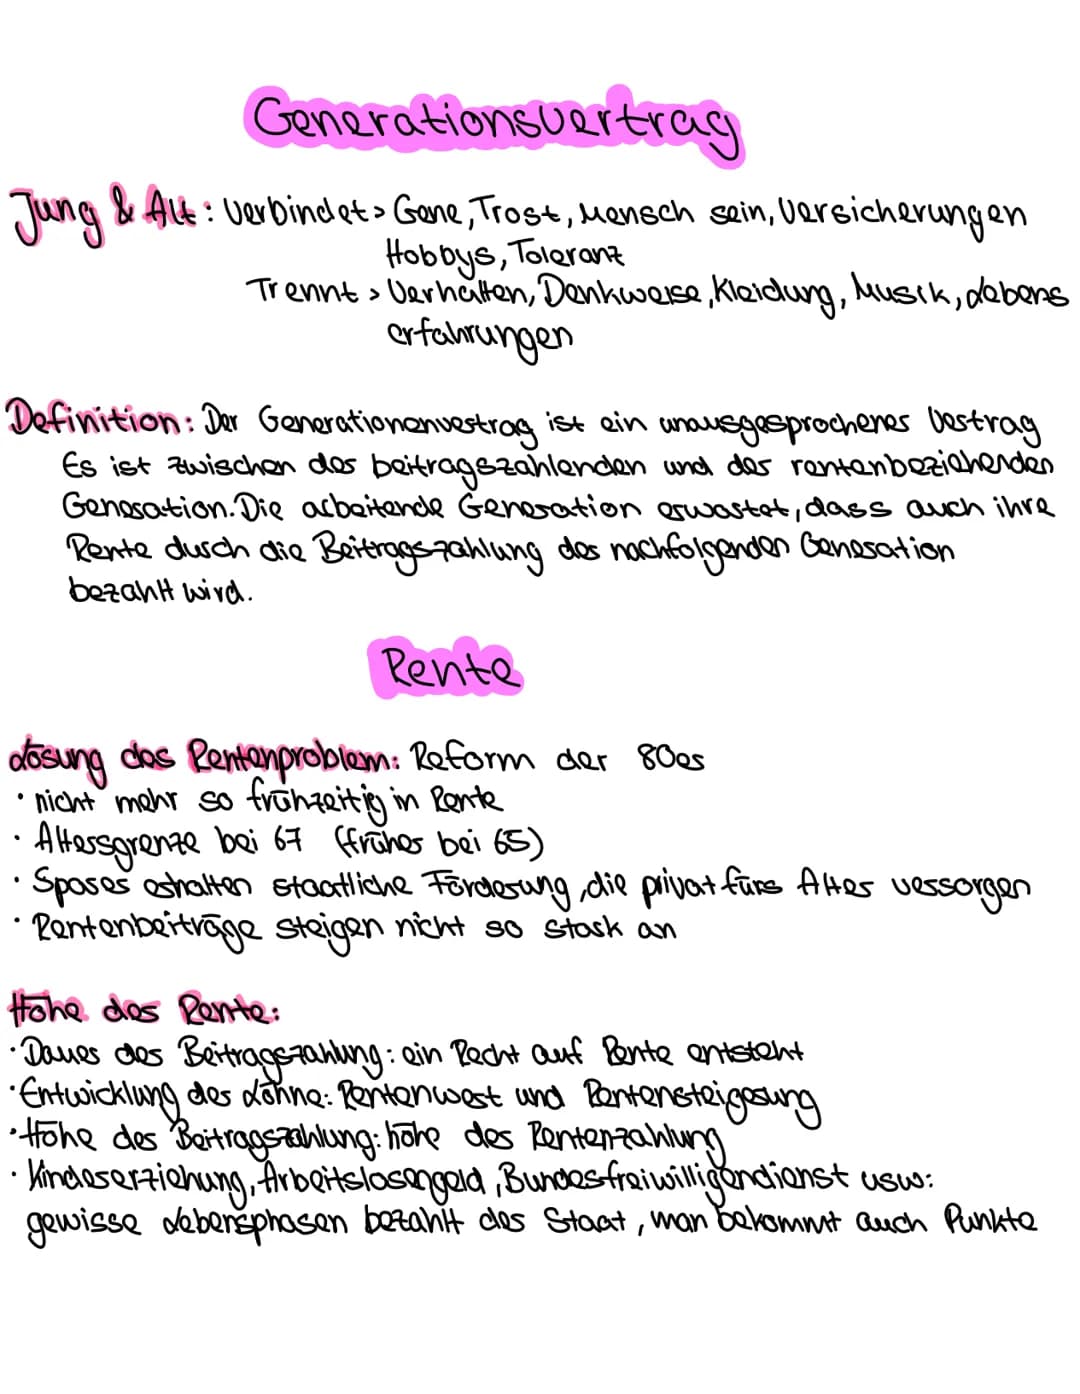 Generationsvertrag
Jung & Alt: Verbindet > Gene, Trost, Mensch sein, Versicherungen
Hobbys, Toleranz
Trennt > Verhalten, Denkweise, Kleidung, Musik, Lebens
erfahrungen
Definition: Der Generationenvertrag ist ein unausgesprochener Vertrag
Es ist zwischen der beitragszahlenden und der rentenbeziehenden
Generation. Die arbeitende Generation erwartet, dass auch ihre
Rente durch die Beitragszahlung der nachfolgenden Generation
bezahlt wird.
Rente
Lösung des Rentenproblem: Reform der 80es
• nicht mehr so frühzeitig in Rente
• Altersgrenze bei 67 (früher bei 65)
• Sparer erhalten staatliche Förderung, die privat fürs Alter versorgen
• Rentenbeiträge steigen nicht so stark an
Höhe der Rente:
• Dauer der Beitragszahlung: ein Recht auf Rente entsteht
• Entwicklung der Löhne: Rentenwert und Rentensteigerung
• Höhe der Beitragszahlung: höhe der Rentenzahlung
• Kindererziehung, Arbeitslosengeld, Bundesfreiwilligendienst usw:
gewisse Lebensphasen bezahlt der Staat, man bekommt auch Punkte